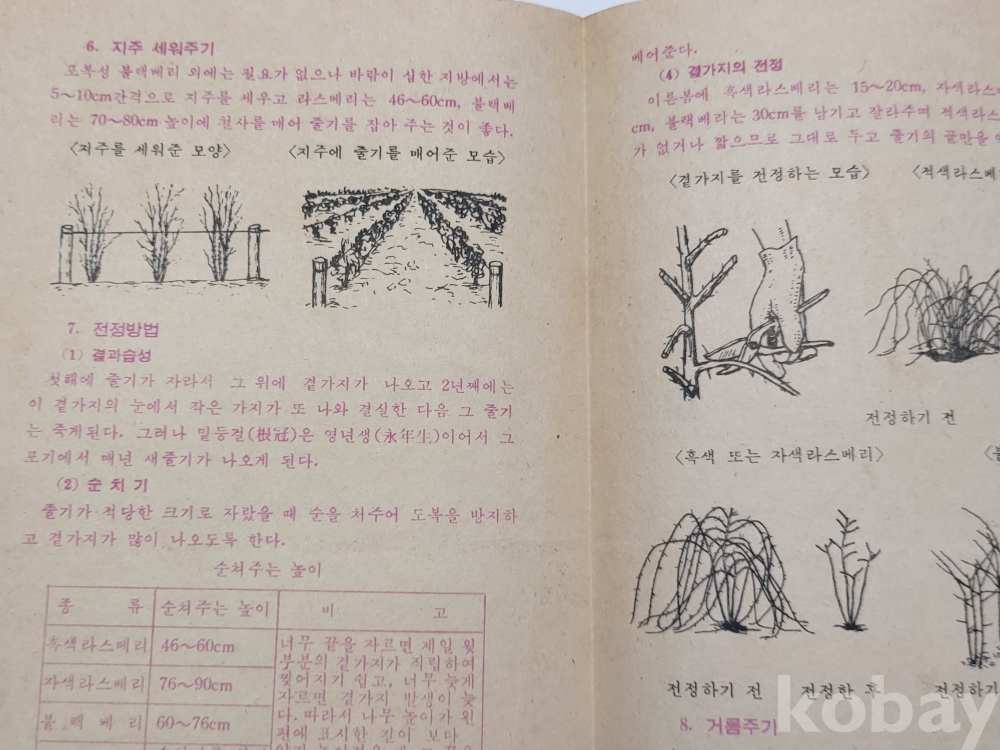 6. 지주 세워주기
포복성 불랙베리 외에는 필요가 없으나 바람이 심한 지방에서는
5~10cm간격으로 지주를 세우고 라스베리는 46~60cm, 불랙베
리는 70~80cm 높이에 철사를 매어 줄기를 잡아 주는 것이 좋다.
〈지주를 세워준 모양〉 〈지주에 줄기를 매어준 모습〉
7. 전정방법
(1) 결과습성
첫해에 줄기가 자라서 그 위에 곁가지가 나오고 2년째에는
이 곁가지의 눈에서 작은 가지가 또 나와 결실한 다음 그 줄기
는 죽게된다. 그러나 밑등걸(根冠)은 영년생(永年生)이어서 그
포기에서 매년 새줄기가 나오게 된다.
(2) 순 치 기
줄기가 적당한 크기로 자랐을 때 순을 처수어 도복을 방지하
고 곁가지가 많이 나오도록 한다.
순쳐주는 높이
종 류 순쳐주는 높이 비 고
흑색라스베리 46~60cm
자색라스베리 76~90cm
불 랙 베 리 60~76cm
너무 끝을 자르면 제일 윗
부분의 곁가지가 직립하여
찢어지가 쉽고, 너무 늦게
자르면 곁가지 발생이 늦
다. 따라서 나무 높이가 왼
편에 표시한 길이 보다
베어준다.
(4) 곁가지의 전정
이른봄에 흑색라스베리는 15~20cm, 자색라스
cm, 불랙베리는 30cm를 남기고 잘라주며 적색라스
가 없거나 짧으므로 그대로 두고 줄기의 끝만을
〈곁가지를 전정하는 모습〉 〈적색라스베
전정하기 전
〈흑색 또는 자색라스베리〉
전정하기 전 전정한 후 전정하기
8. 거름주기
kobay